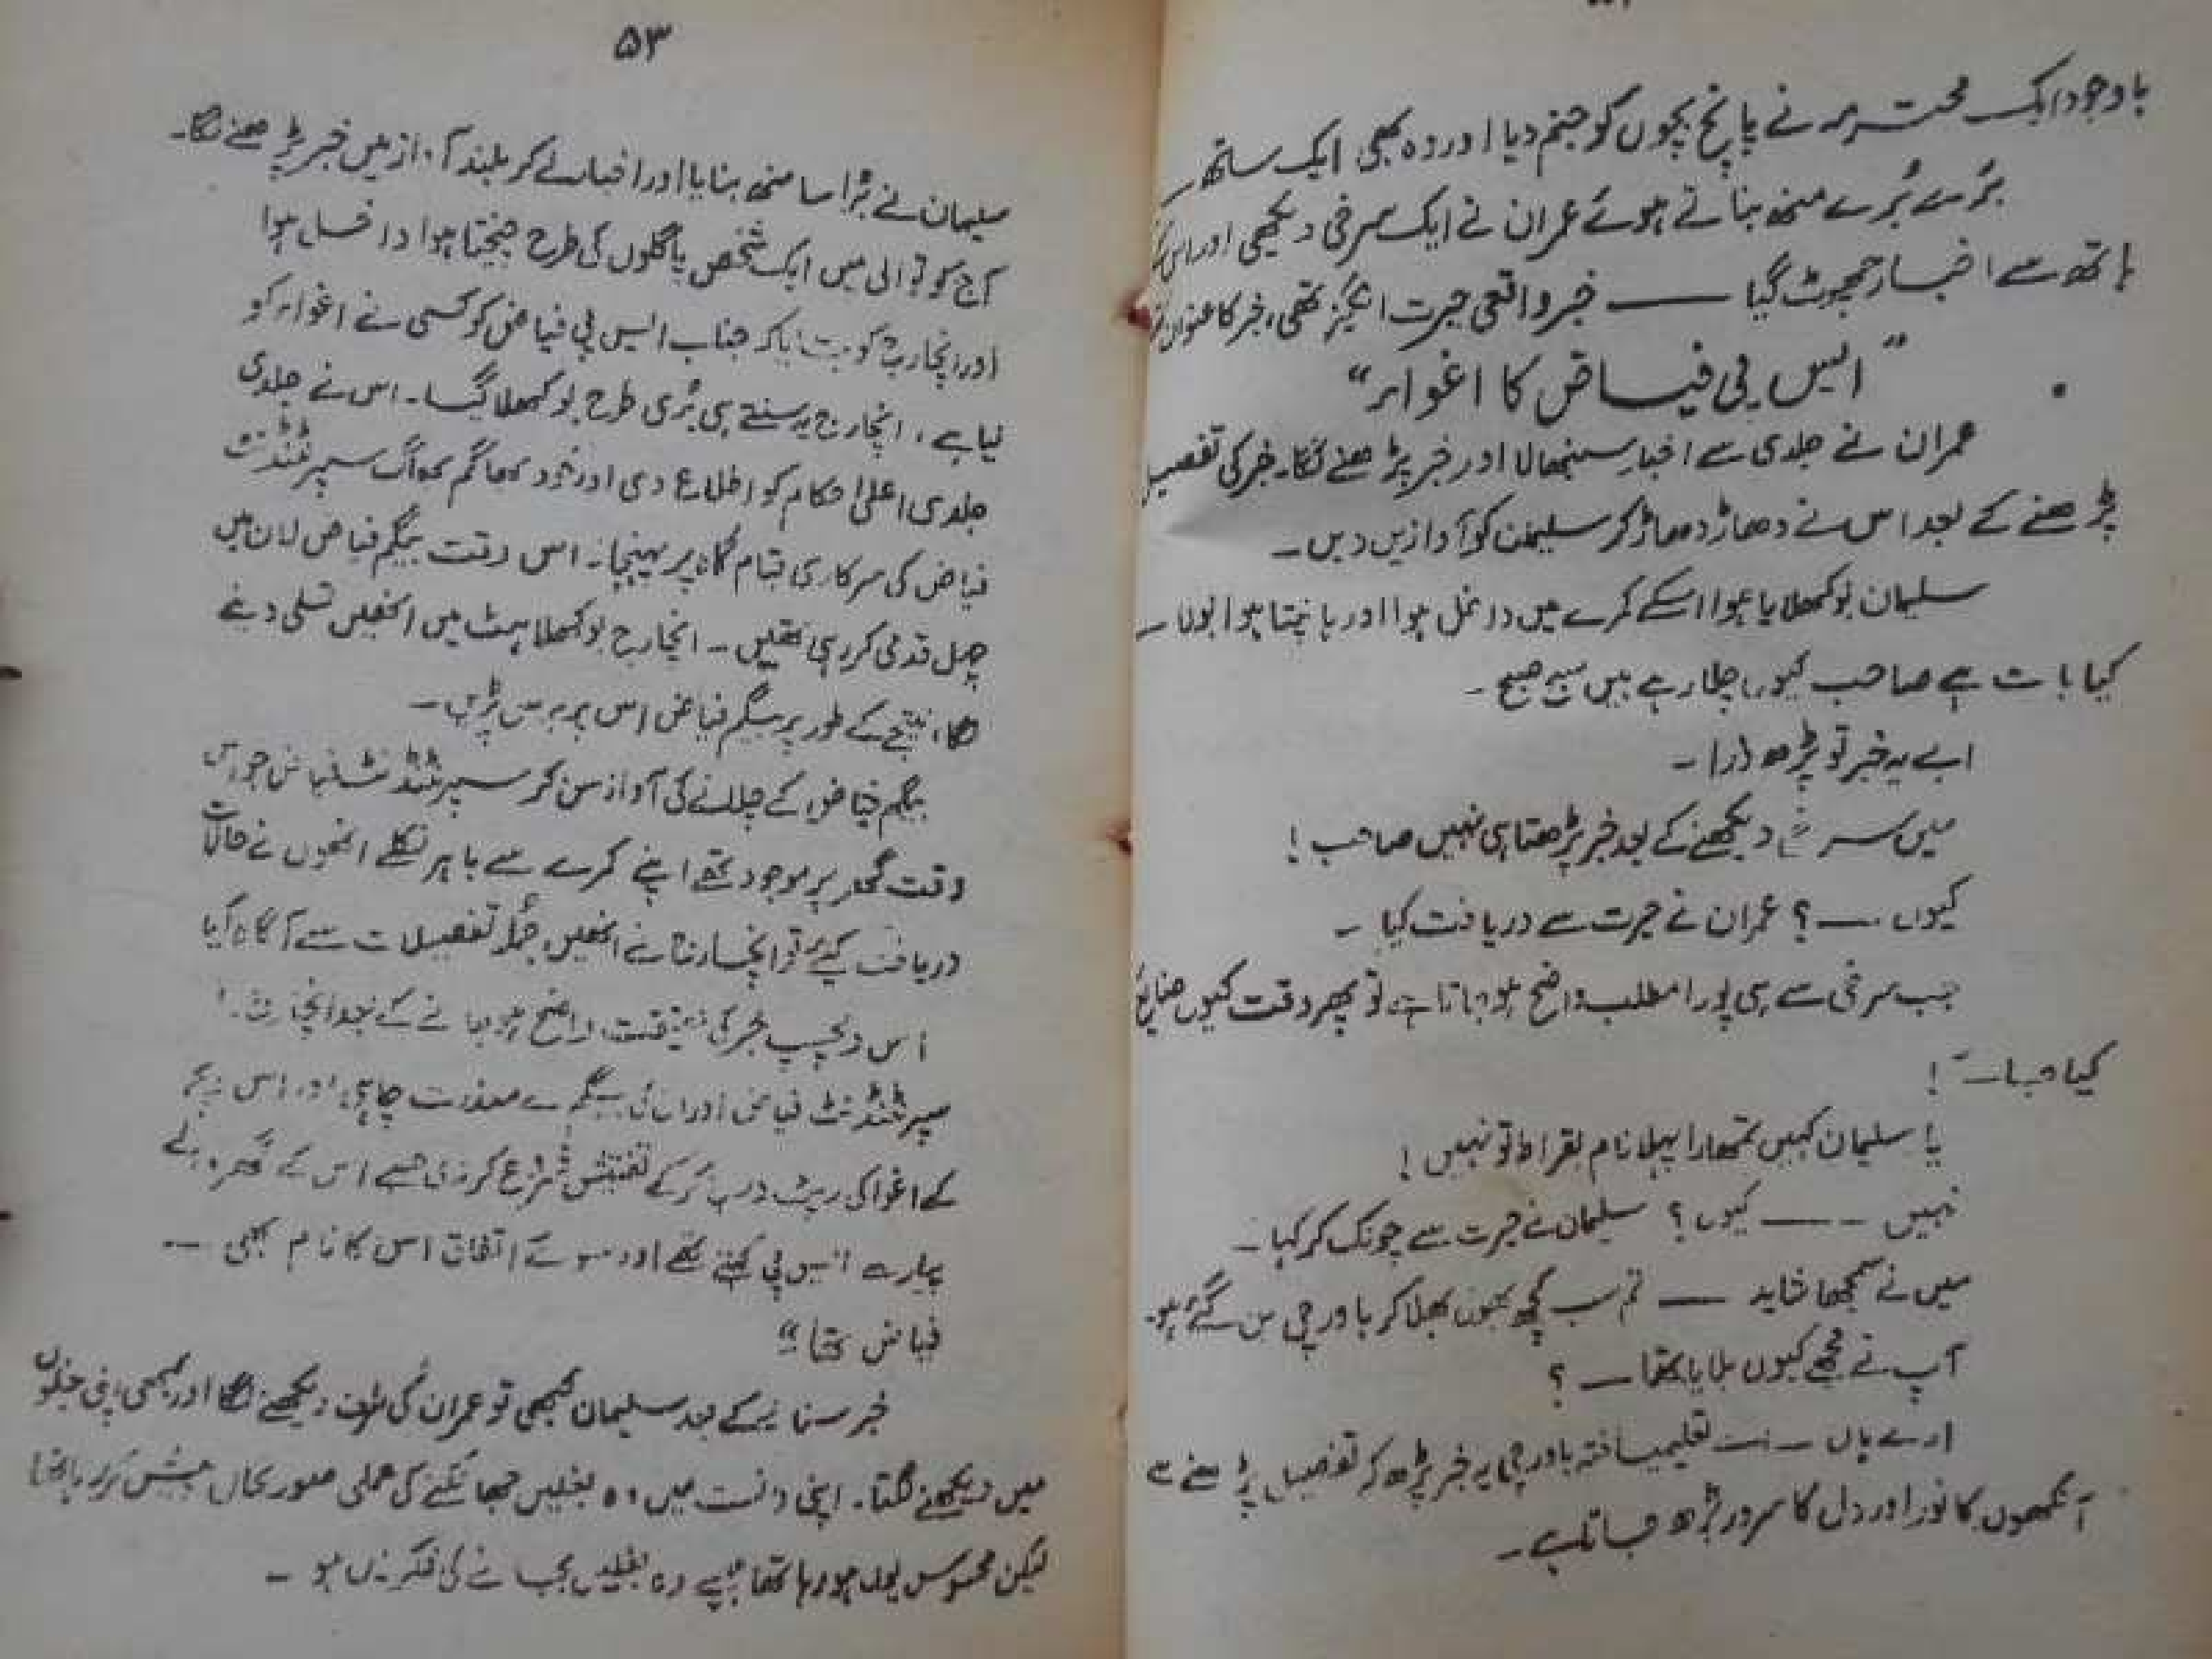 باوجود ایک محترمہ نے پانچ بچوں کو جنم دیا اور وہ بھی ایک ساتھ۔
بُرے بُرے منھ بناتے ہوئے عمران نے ایک سرخی دیکھی اور اس کے
ہاتھ سے اخبار چھوٹ گیا —— خبر واقعی حیرت انگیز تھی، خبر کا عنوان تھا
"ایس پی فیاض کا اغواء"
عمران نے جلدی سے اخبار سنبھالا اور خبر پڑھنے لگا۔ خبر کی تفصیل
پڑھنے کے بعد اس نے دھاڑ دھاڑ کر سلیمان کو آوازیں دیں۔
سلیمان بوکھلایا ہوا اسکے کمرے میں داخل ہوا اور ہانپتا ہوا بولا۔
کیا بات ہے صاحب کیوں چلا رہے ہیں صبح صبح۔
ابے یہ خبر تو پڑھ ذرا۔
میں سرخی دیکھنے کے بعد خبر پڑھتا ہی نہیں صاحب!
کیوں —؟ عمران نے حیرت سے دریافت کیا۔
جب سرخی سے ہی پورا مطلب واضح ہو جاتا ہے تو پھر وقت کیوں ضایع
کیا جائے!
یا سلیمان کہیں تمھارا پہلا نام بقراط تو نہیں!
نہیں —— کیوں؟ سلیمان نے حیرت سے چونک کر کہا۔
میں نے سمجھا شاید —— تم سب کچھ بھول بھلا کر باورچی بن گئے ہو۔
آپ نے مجھے کیوں بلایا تھا —؟
ارے ہاں — تعلیمیافتہ باورچی یہ خبر پڑھ کہ تفصیل پڑھنے سے
آنکھوں کا نور اور دل کا سرور بڑھ جاتا ہے۔
۵۳
سلیمان نے بُرا سا منھ بنایا اور اخبار لے کر بلند آواز میں خبر پڑھنے لگا۔
آج کوتوالی میں ایک شخص پاگلوں کی طرح چیختا ہوا داخل ہوا
اور انچارج کو بتایا کہ جناب ایس پی فیاض کو کسی نے اغواء کر
لیا ہے، انچارج یہ سنتے ہی بُری طرح بوکھلا گیا۔ اس نے جلدی
جلدی اعلیٰ احکام کو اطلاع دی اور خود بھاگم بھاگ سپرنٹنڈنٹ
فیاض کی سرکاری قیام گاہ پر پہنچا۔ اس وقت بیگم فیاض لان میں
چہل قدمی کر رہی تھیں۔ انچارج بوکھلاہٹ میں انھیں تسلی دینے
لگا، نتیجے کے طور پر بیگم فیاض اس پر برس پڑیں۔
بیگم فیاض کے چلانے کی آواز سن کر سپرنٹنڈنٹ فیاض جو اس
وقت گھر پر موجود تھے اپنے کمرے سے باہر نکلے انھوں نے حالات
دریافت کیے تو انچارج نے انھیں جملہ تفصیلات سے آگاہ کیا
اس دلچسپ خبر کی حقیقت واضح ہو جانے کے بعد انچارج نے
سپرنٹنڈنٹ فیاض اور ان کی بیگم سے معذرت چاہی اور اس
کے اغوا کی رپٹ درج کر کے تفتیش شروع کر دی جسے اس کے گھر والے
پیارے ایس پی کہتے تھے اور سوئے اتفاق اس کا نام بھی —
فیاض تھا"
خبر سنانے کے بعد سلیمان کبھی تو عمران کی طرف دیکھنے لگتا اور کبھی اپنی بغلوں
میں دیکھنے لگتا۔ اپنی دانست میں وہ بغلیں جھانکنے کی عملی صورت حال پیش کر رہا تھا
لیکن محسوس یوں ہو رہا تھا جیسے وہ بغلیں بجانے کی فکر میں ہو۔